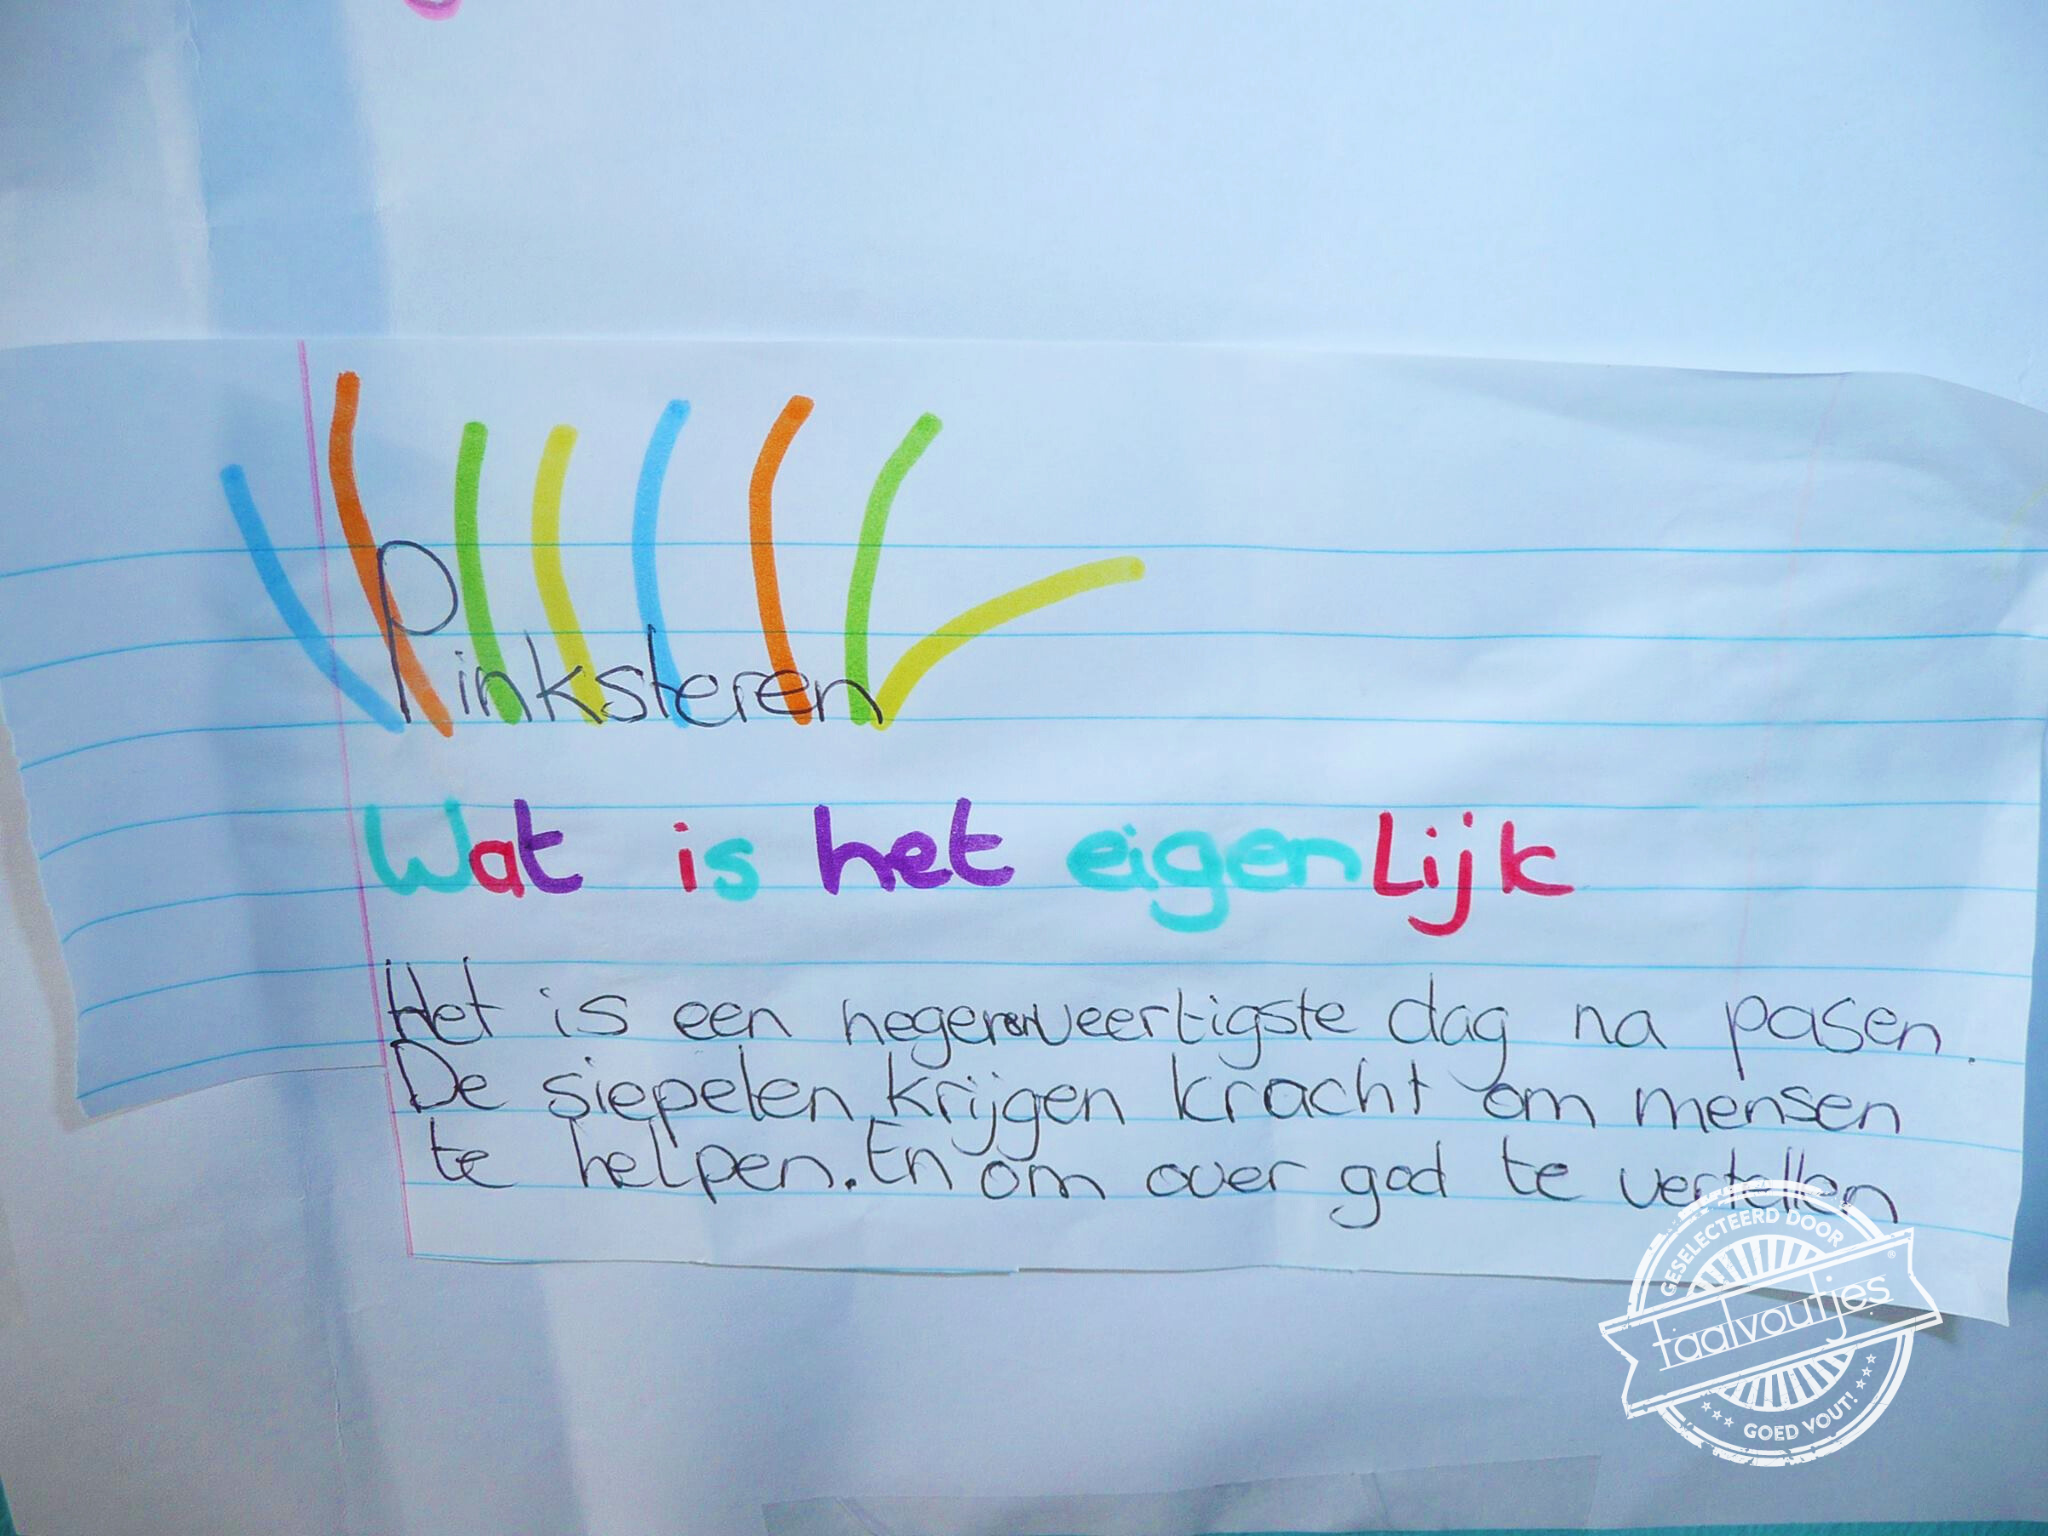 Pinksteren
Wat is het eigenlijk
Het is een negenenveertigste dag na pasen.
De siepelen krijgen kracht om mensen
te helpen. En om over god te vertellen
GESELECTEERD DOOR
taalvoutjes®
GOED VOUT!